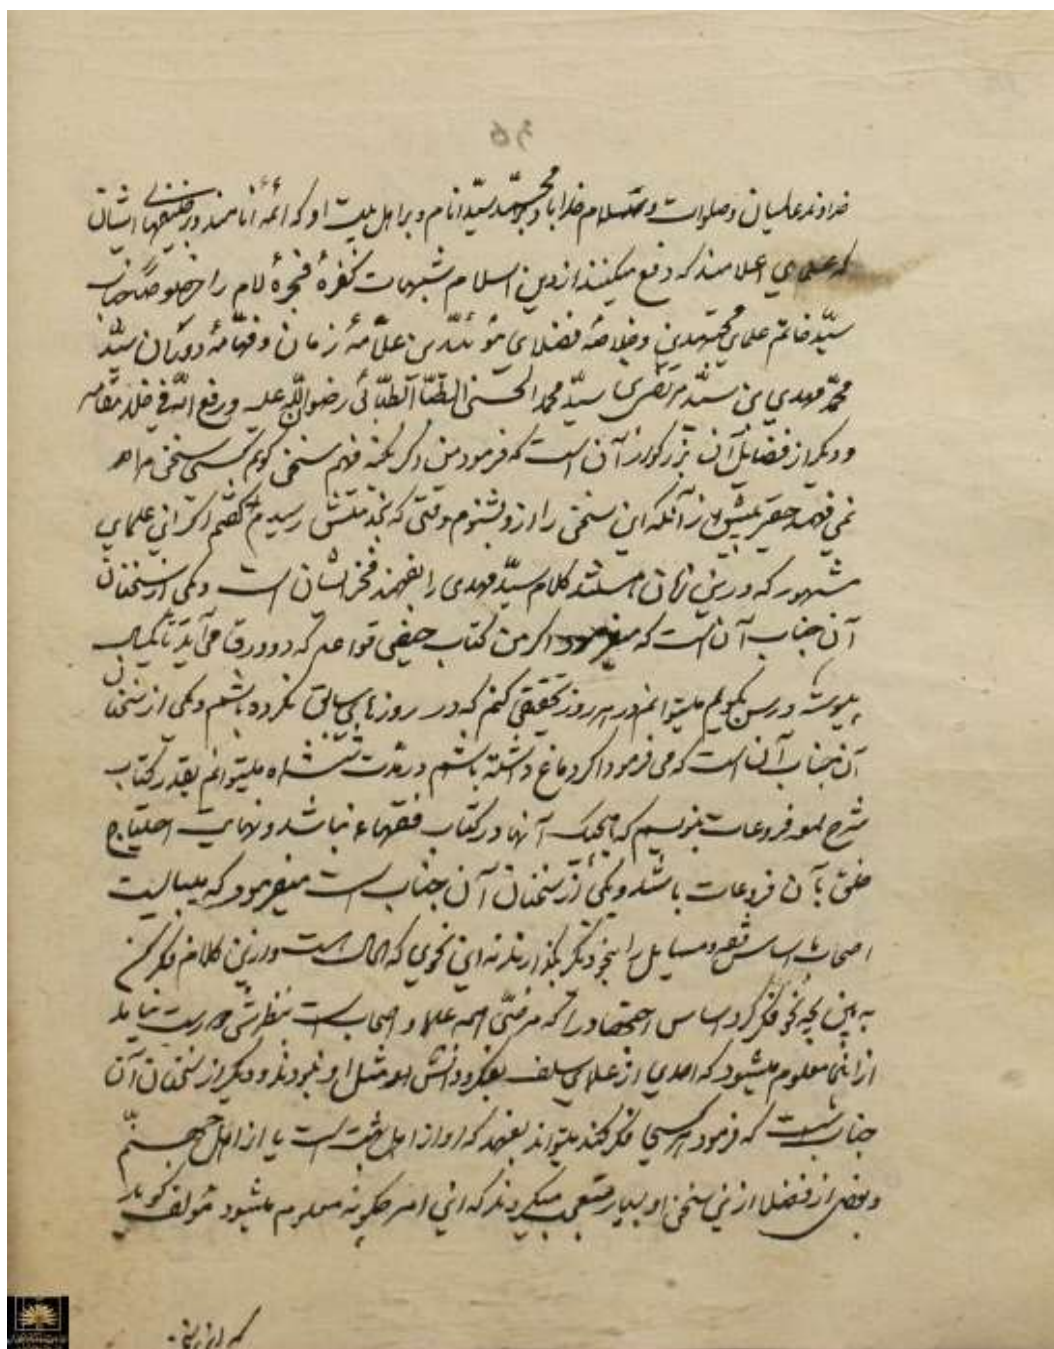 خداوند عالمیان و صلوات و سلام خدا باد بر محمد سیّد انام و بر اهل بیت او که ائمهٔ انامند و بر ایشان
که علمای اعلامند که دفع میکنند از دین اسلام شبهات کفرهٔ فجرهٔ لام را خصوصا جناب
سیّد خاتم علمای مجتهدین و خلاصهٔ فضلای مؤیّدین علّامهٔ زمان و فهّامهٔ دوران سیّد
محمّد مهدی بن سیّد مرتضی سیّد محمد الحسنی الطّباطبائی رضوان اللّه علیه و رفع اللّه فی خلد مقامه
و دیگر از فضایل آن بزرگوار آن است که فرمود من اگر نکته فهم سخن گویم کسی سخن مرا
نمی فهمد حقیر پیش از آنکه این سخن را از او بشنوم وقتی که بخدمتش رسیدم گفتم اگر این علمای
مشهور که درین زمان هستند کلام سیّد مهدی را بفهمند فخر ایشان است و یکی از سخنان
آن جناب آن است که میفرمود اگر من کتاب حیض قواعد که دو ورق می آید تا یکسال
پیوسته درس بگویم میتوانم در هر روز تحقیقی کنم که در روزهای سابق نکرده باشم و یکی از سخنان
آن جناب آن است که می فرمود اگر دماغ داشته باشم در مدّت شش ماه میتوانم بقدر کتاب
شرح لمعه فروعات بنویسم که هیچیک آنها در کتاب فقهاء نباشد و نهایت احتیاج
خلق بآن فروعات باشد و یکی از سخنان آن جناب است میفرمود که میبایست
اصحاب اساس فقه و مسایل را بنحو دیگر بگذارند نه این نحوی که الحال است و درین کلام فکر کن
به بین بچه نحو فکر کرد اساس اجتهاد را که مرضیّ همه علما و اصحاب است بنظرش درست نیامد
از اینجا معلوم میشود که احدی از علمای سلف بفکر و دانش او مثل او نبودند و دیگر از سخنان آن
جناب است که فرمود هر کسی فکر کند میتواند بفهمد که او از اهل جنّت است یا از اهل جهنّم
و بعضی از فضلا ازین سخن او بسیار متعجب میگردیدند که این امر چگونه معلوم میشود مؤلف گوید
که ازین